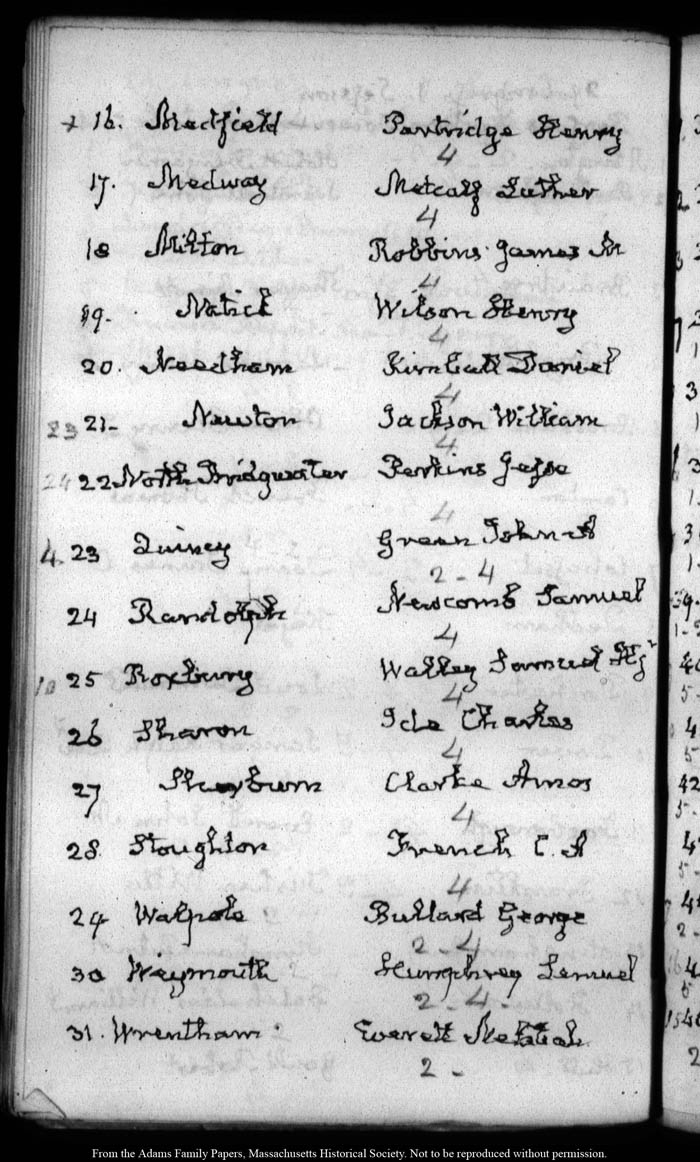 + 16. Medfield Partridge Henry
4
17. Medway Metcalf Luther
4
18 Milton Robbins James M
4
19. Natick Wilson Henry
4
20. Needham Kimball Daniel
4
23 21- Newton Jackson William
4
24 22 North Bridgwater Perkins Jesse
4
4. 23 Quincy Green John A
2 - 4
24 Randolph Newcomb Samuel
4
10 25 Roxbury Walley Samuel H jr
4
26 Sharon Ide Charles
4
27 Sherburn Clarke Amos
4
28. Stoughton French C. A
4
29 Walpole Bullard George
2 - 4
30 Weymouth Humphrey Lemuel
2 - 4 -
31. Wrentham Everett
2 -
From the Adams Family Papers, Massachusetts Historical Society. Not to be reproduced without permission.